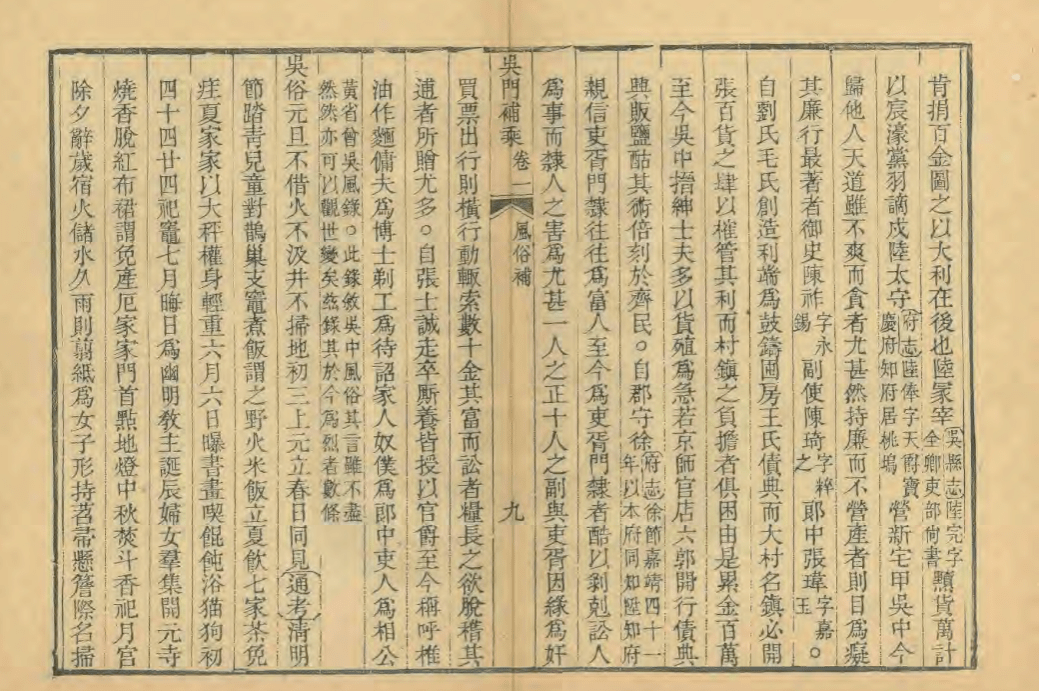 肯捐百金圖之以大利在後也陸冢宰吳縣志陸完字全卿吏部尚書黷貨萬計
以宸濠黨羽謫戍陸太守府志陸俸字天爵寶慶府知府居桃塢營新宅甲吳中今
歸他人天道雖不爽而貪者尤甚然持廉而不營產者則目為癡
其廉行最著者御史陳祚字永錫副使陳琦字粹之郎中張瑋字嘉玉。
自劉氏毛氏創造利端為鼓鑄囤房王氏債典而大村名鎮必開
張百貨之肆以榷管其利而村鎮之負擔者俱困由是累金百萬
至今吳中搢紳士夫多以貨殖為急若京師官店六郭開行債典
興販鹽酤其術倍刻於齊民。自郡守徐府志徐節嘉靖四十一年以本府同知陞知府
親信吏胥門隸往往為富人至今為吏胥門隸者酷以剝剋訟人
為事而隸人之害為尤甚一人之正十人之副與吏胥因緣為奸
吳門補乘 卷一 風俗補 九
買票出行則橫行動輒索數十金其富而訟者糧長之欲脫稽其
逋者所贈尤多。自張士誠走卒厮養皆授以官爵至今稱呼椎
油作麵傭夫為博士剃工為待詔家人奴僕為郎中吏人為相公
黃省曾吳風錄。此錄敘吳中風俗其言雖不盡
然然亦可以觀世變矣茲錄其於今為烈者數條
吳俗元旦不借火不汲井不掃地初三上元立春日同見通考清明
節踏青兒童對鵲巢支竈煮飯謂之野火米飯立夏飲七家茶免
疰夏家家以大秤權身輕重六月六日曝書畫喫餛飩浴猫狗初
四十四廿四祀竈七月晦日為幽明教主誕辰婦女羣集開元寺
燒香脫紅布裙謂免產厄家家門首點地燈中秋焚斗香祀月宮
除夕辭歲宿火儲水久雨則翦紙為女子形持苕帚懸簷際名掃